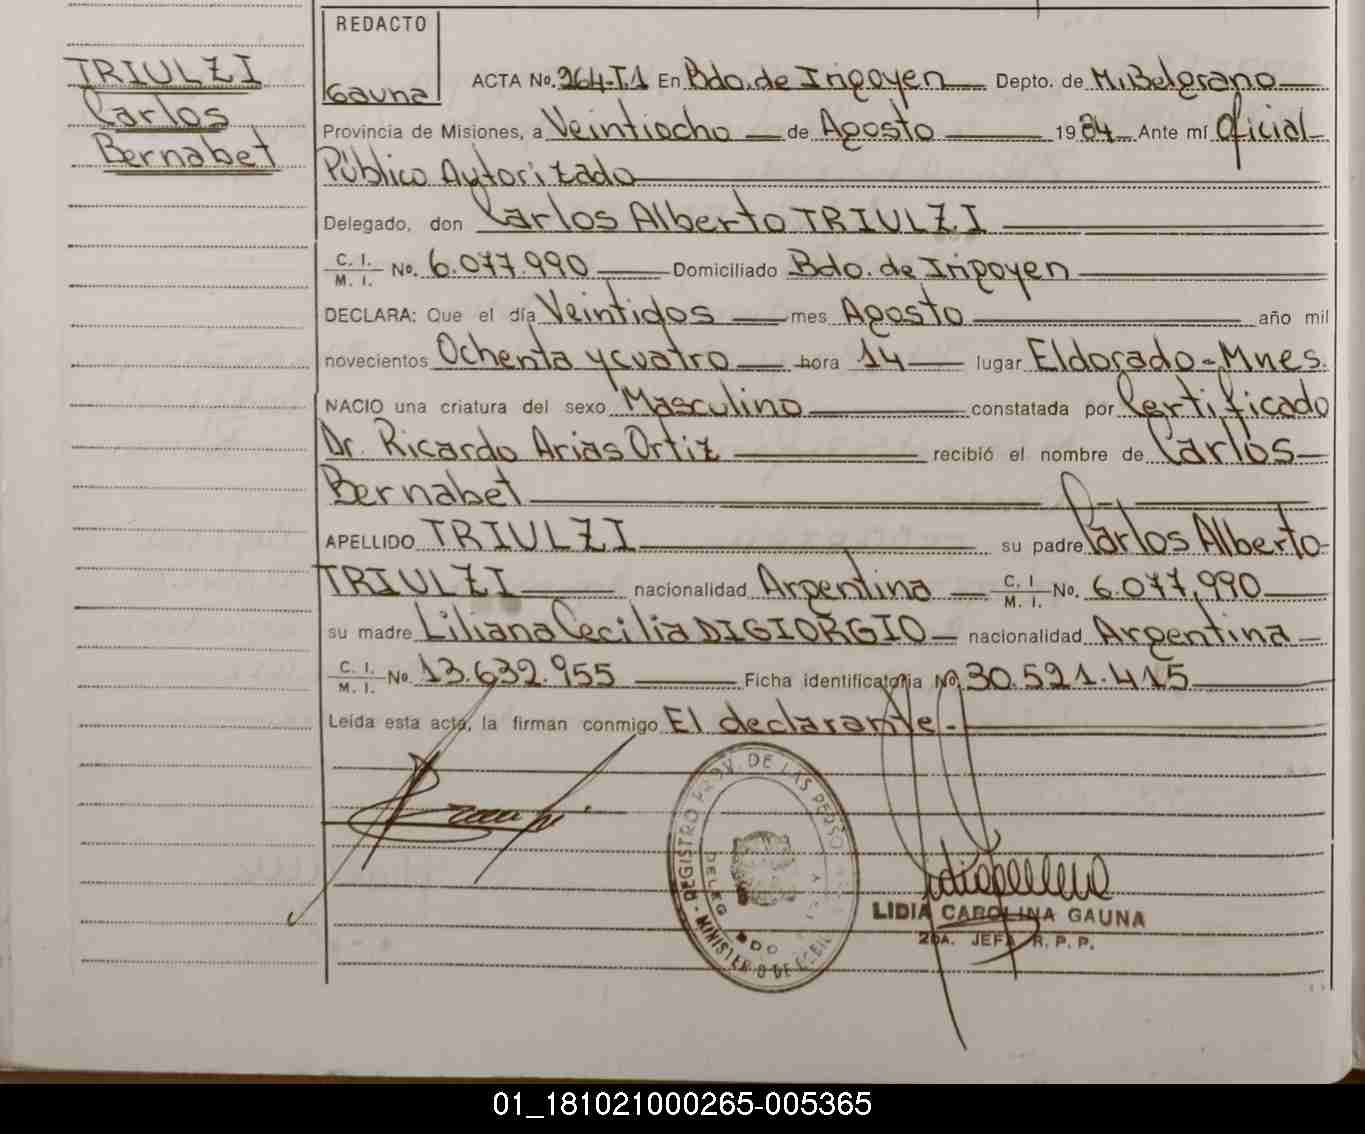 TRIULZI
Carlos
Bernabet
REDACTO
Gauna
ACTA No. 264-T.1 En Bdo. de Irigoyen Depto. de M. Belgrano
Provincia de Misiones, a Veintiocho de Agosto 1984 Ante mí Oficial
Público Autorizado
Delegado, don Carlos Alberto TRIULZI
C. I.
M. I. No. 6.077.990 Domiciliado Bdo. de Irigoyen
DECLARA: Que el día Veintidos mes Agosto año mil
novecientos Ochenta y cuatro hora 14 lugar Eldorado - Mnes.
NACIO una criatura del sexo Masculino constatada por Certificado
Dr. Ricardo Arias Ortiz recibió el nombre de Carlos
Bernabet
APELLIDO TRIULZI su padre Carlos Alberto
TRIULZI nacionalidad Argentina C. I.
M. I. No. 6.077.990
su madre Liliana Cecilia DIGIORGIO nacionalidad Argentina
C. I.
M. I. No. 13.632.955 Ficha identificatoria No. 30.521.415
Leída esta acta, la firman conmigo El declarante.-
REGISTRO PROV. DE LAS PERSO
DELEG
BDO
MINISTERIO DE
LIDIA CAROLINA GAUNA
2DA. JEFA R. P. P.
01_181021000265-005365